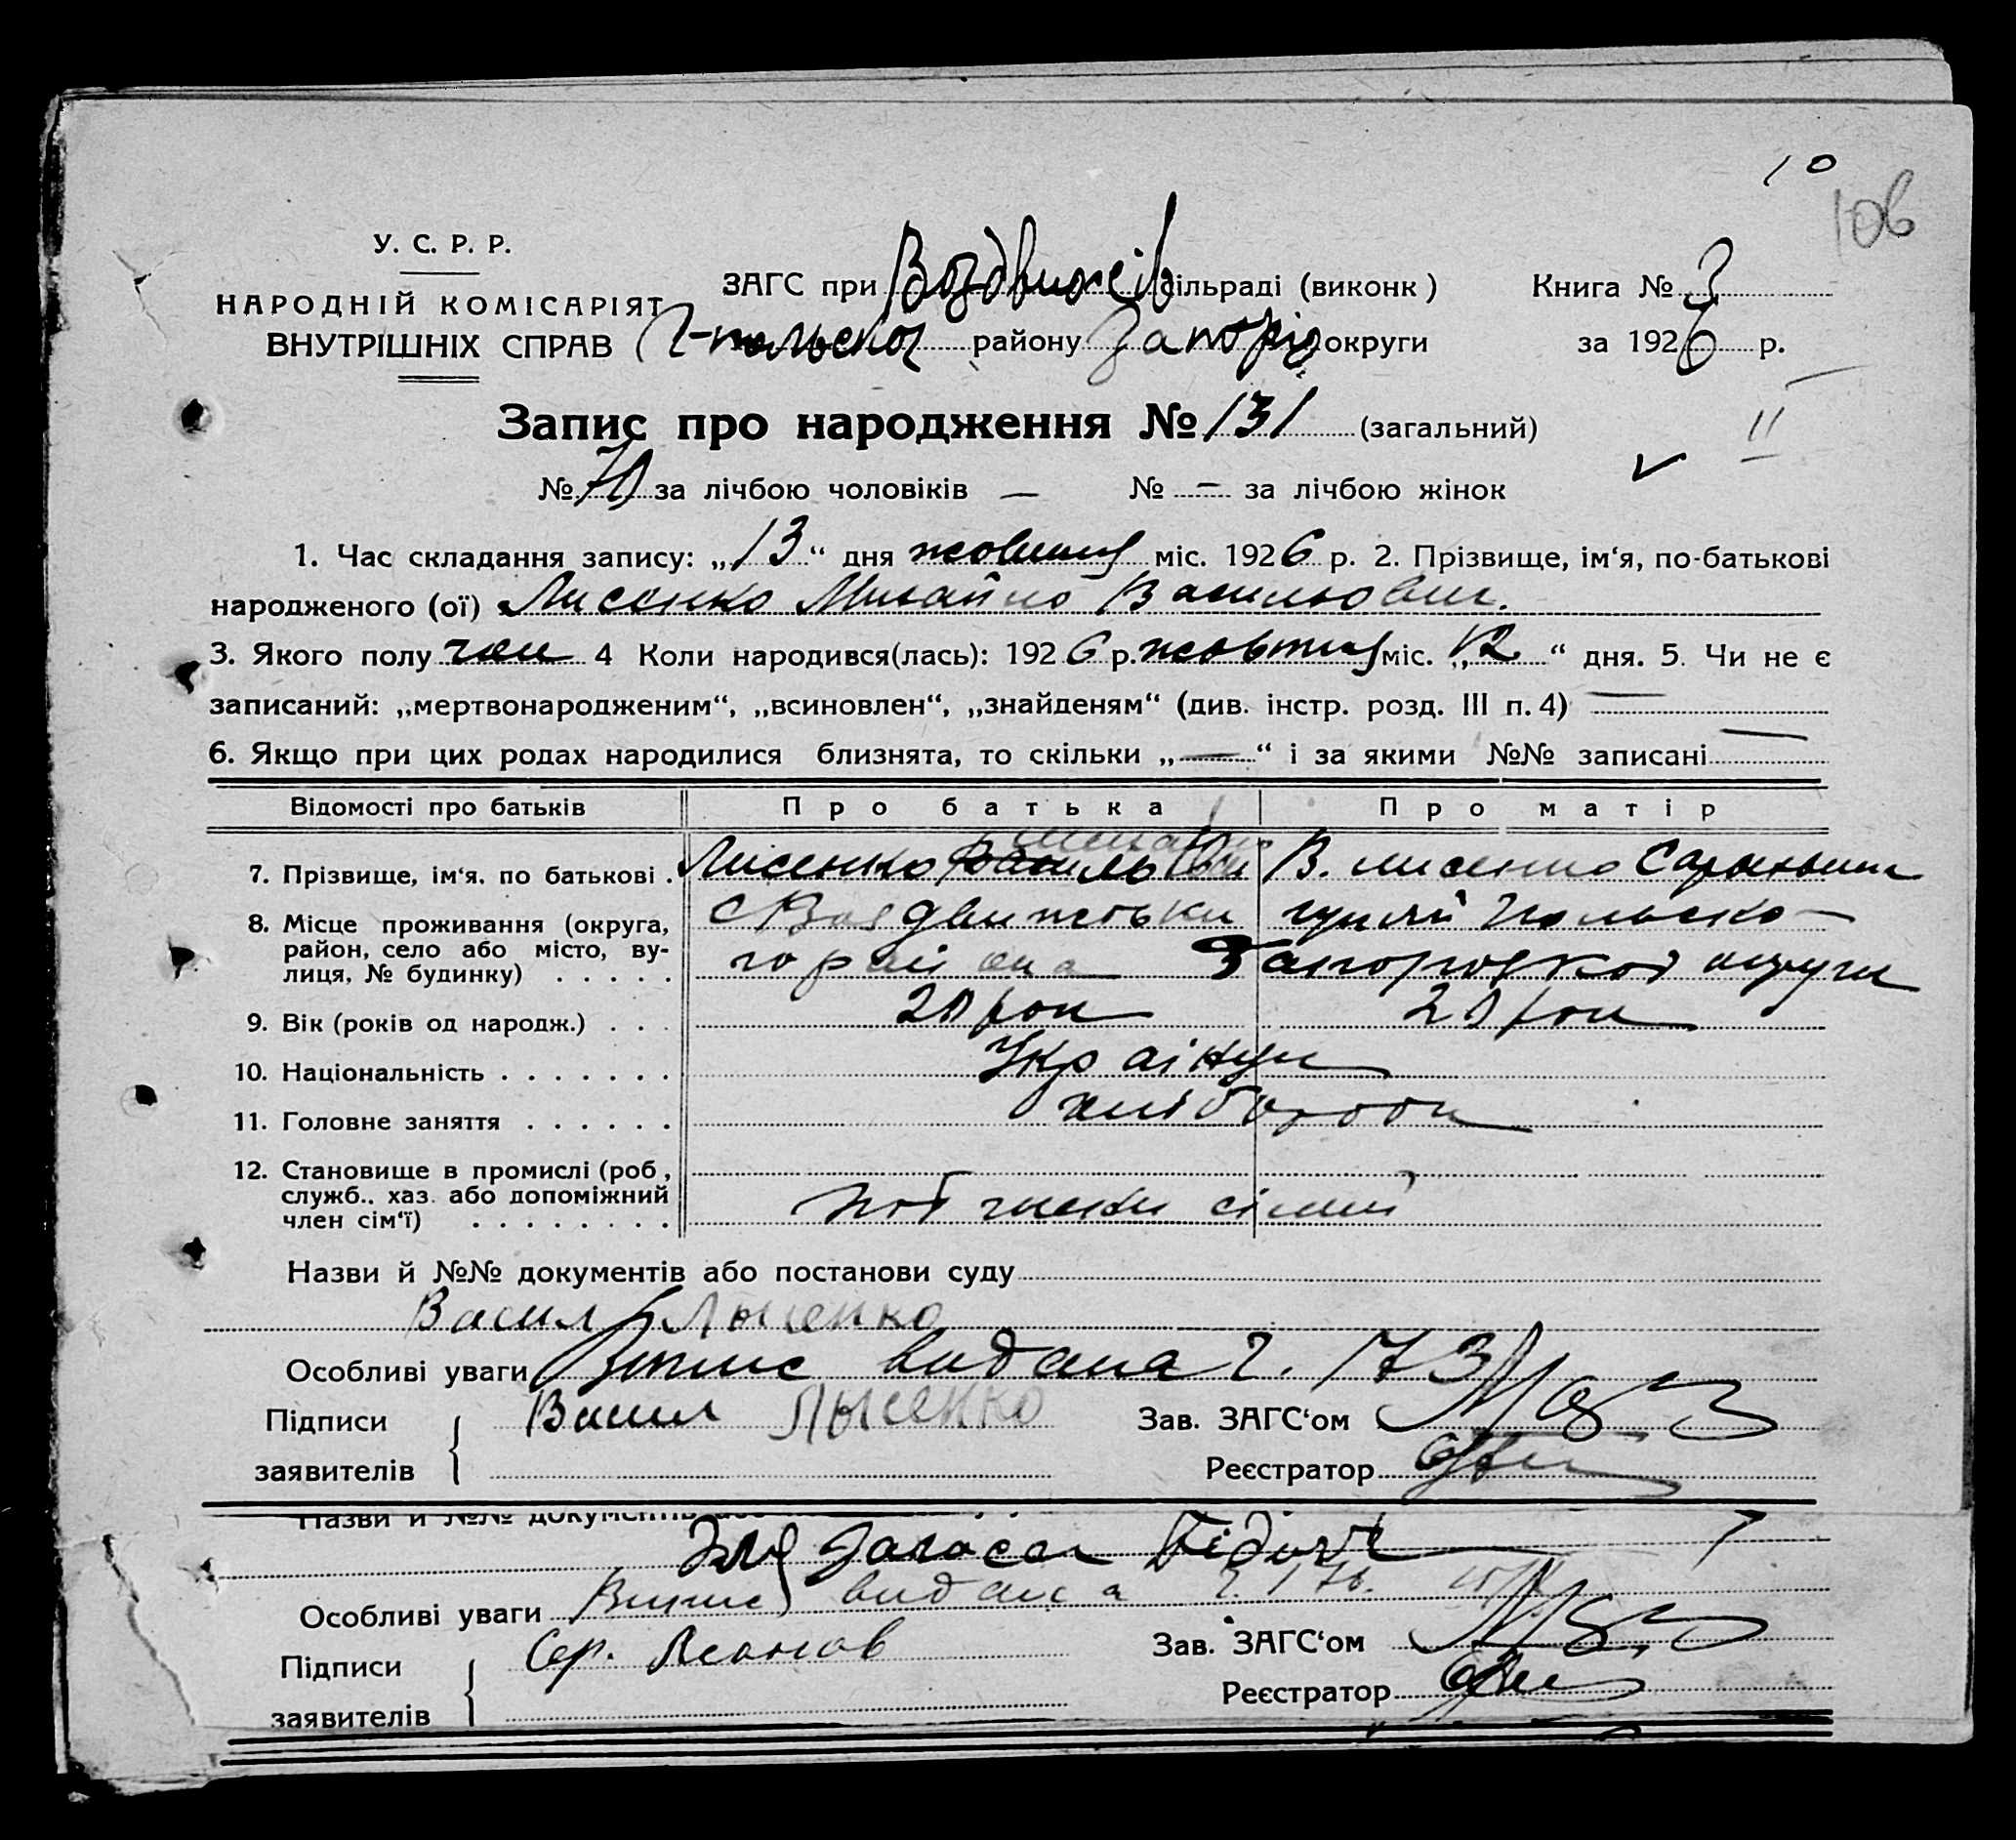 10
106
У. С. Р. Р.
НАРОДНІЙ КОМІСАРІЯТ
ВНУТРІШНІХ СПРАВ
ЗАГС при Воздвижів сільраді (виконк)
Г-польськог району Запоріз округи
Книга № 3
за 1926 р.
Запис про народження № 131 (загальний)
II
№ 70 за лічбою чоловіків — № - за лічбою жінок
1. Час складання запису: „13“ дня жовтня міс. 1926 р. 2. Прізвище, ім‘я, по-батькові
народженого (ої) Лисенко Михайло Васильович.
3. Якого полу чол 4 Коли народився(лась): 1926 р. жовтня міс. „12“ дня. 5. Чи не є
записаний: „мертвонародженим“, „всиновлен“, „знайденям“ (див. інстр. розд. III п. 4) —
6. Якщо при цих родах народилися близнята, то скільки „—“ і за якими №№ записані —
Відомості про батьків Про батька Про матір
7. Прізвище, ім‘я, по батькові . Лисенко Василь В. Лисенко
8. Місце проживання (округа, с Воздвижівки гуляй Польсько-
район, село або місто, ву-
лиця, № будинку) . . . . . го района Запорозкої округи
9. Вік (років од народж.) . . . 20 рок 20 рок
10. Національність . . . . . . . Українци
11. Головне заняття . . . . . . хлібороби
12. Становище в промислі (роб.,
служб., хаз. або допоміжний
член сім‘ї) . . . . . . . . члени сімьї
Назви й №№ документів або постанови суду
Васил Лысенко
Особливі уваги Випис видана 2. 173
Підписи Васил Лысенко Зав. ЗАГС‘ом
заявителів Реєстратор
Назви й №№ документів
Особливі уваги Випис видана 176.
Підписи Сер. Зав. ЗАГС‘ом
заявителів Реєстратор